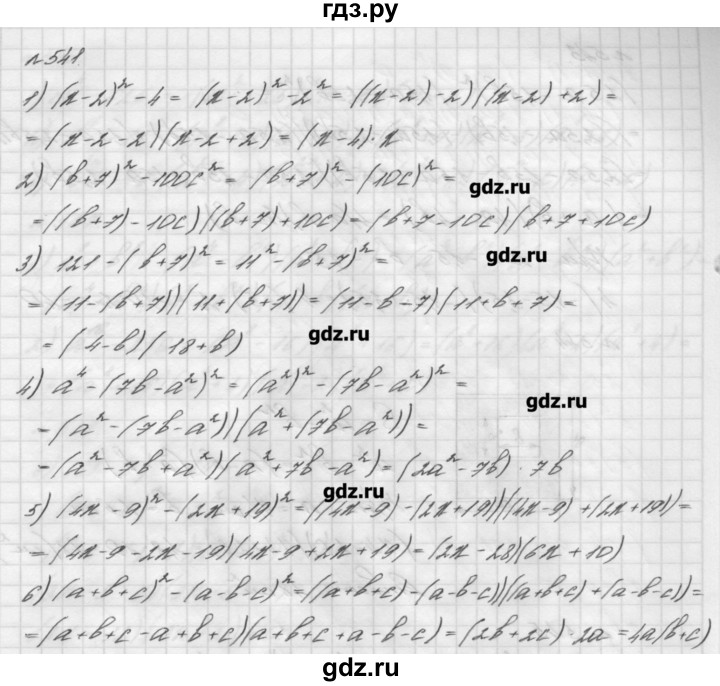 гдз.ру
№541
1) (x-2)² - 4 = (x-2)² - 2² = ((x-2) - 2)((x-2) + 2) =
= (x-2-2)(x-2+2) = (x-4)·x
2) (b+7)² - 100c² = (b+7)² - (10c)² =
gdz.ru
= ((b+7) - 10c)((b+7) + 10c) = (b+7-10c)(b+7+10c)
3) 121 - (b+7)² = 11² - (b+7)² =
gdz.ru
= (11-(b+7))(11+(b+7)) = (11-b-7)(11+b+7) =
= (4-b)(18+b)
gdz.ru
4) a⁴ - (7b-a²)² = (a²)² - (7b-a²)² =
gdz.ru
= (a² - (7b-a²))(a² + (7b-a²)) =
= (a² - 7b + a²)(a² + 7b - a²) = (2a² - 7b) · 7b
gdz.ru
5) (4x-9)² - (2x+19)² = ((4x-9) - (2x+19))((4x-9) + (2x+19)) =
= (4x-9-2x-19)(4x-9+2x+19) = (2x-28)(6x+10)
6) (a+b+c)² - (a-b-c)² = ((a+b+c) - (a-b-c))((a+b+c) + (a-b-c)) =
= (a+b+c-a+b+c)(a+b+c+a-b-c) = (2b+2c) · 2a = 4a(b+c)
gdz.ru